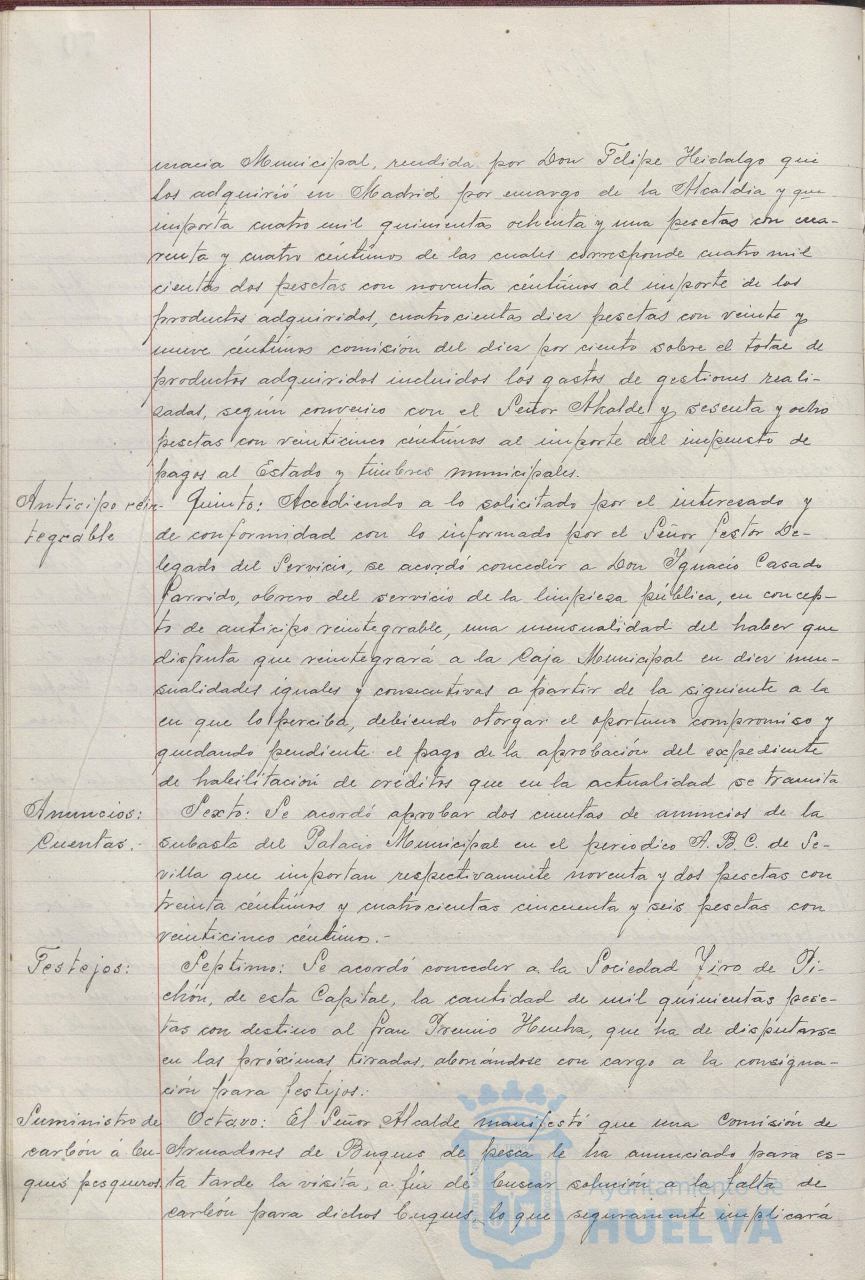 macia Municipal, rendida por Don Felipe Heidalgo que
los adquirió en Madrid por encargo de la Alcaldia y que
importa cuatro mil quinientas ochenta y una pesetas con cua-
renta y cuatro céntimos de las cuales corresponde cuatro mil
cientas dos pesetas con noventa céntimos al importe de los
productos adquiridos, cuatrocientas diez pesetas con veinte y
nueve céntimos comisión del diez por ciento sobre el total de
productos adquiridos incluidos los gastos de gestiones reali-
zadas, según convenio con el Señor Alcalde y sesenta y ocho
pesetas con veinticinco céntimos al importe del impuesto de
pagos al Estado y timbres municipales.
Anticipo rein-
tegrable
Quinto: Accediendo a lo solicitado por el interesado y
de conformidad con lo informado por el Señor Gestor De-
legado del Servicio, se acordó conceder a Don Ignacio Casado
Garrido, obrero del servicio de la limpieza pública, en concep-
to de anticipo reintegrable, una mensualidad del haber que
disfruta que reintegrará a la Caja Municipal en diez men-
sualidades iguales y consecutivas a partir de la siguiente a la
en que lo perciba, debiendo otorgar el oportuno compromiso y
quedando pendiente el pago de la aprobación del expediente
de habilitación de créditos que en la actualidad se tramita
Anuncios:
Cuentas.-
Sexto: Se acordó aprobar dos cuentas de anuncios de la
subasta del Palacio Municipal en el periodico A.B.C. de Se-
villa que importan respectivamente noventa y dos pesetas con
treinta céntimos y cuatrocientas cincuenta y seis pesetas con
veinticinco céntimos.-
Festejos:
Séptimo: Se acordó conceder a la Sociedad Tiro de Pi-
chón, de esta Capital, la cantidad de mil quinientas pese-
tas con destino al Gran Premio Huelva, que ha de disputarse
en las próximas tiradas, abonándose con cargo a la consigna-
ción para festejos.-
Suministro de
carbón á bu-
ques pesqueros.
Octavo: El Señor Alcalde manifestó que una Comisión de
Armadores de Buques de pesca le ha anunciado para es-
ta tarde la visita, a fin de buscar solución a la falta de
carbón para dichos buques, lo que seguramente implicará
Ayuntamiento de
HUELVA